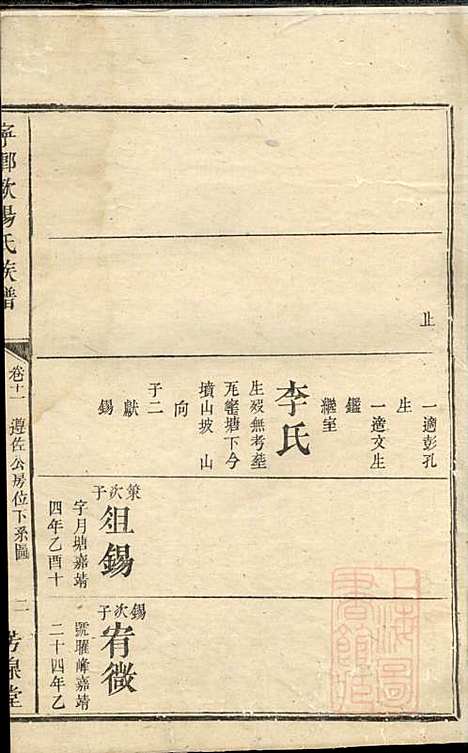 止
一適彭孔
生
一適文生
鑑
繼室
李氏
生歿無考葬
瓦窰塘下兮
墳山坡山
向
子二
獻
錫
策次子
俎錫
字月塘嘉靖
四年乙酉十
錫次子
宥微
號耀峰嘉靖
二十四年乙
寧鄉歐陽氏族譜
卷十一
遵佐公房位下系圖
二
上海圖書館藏